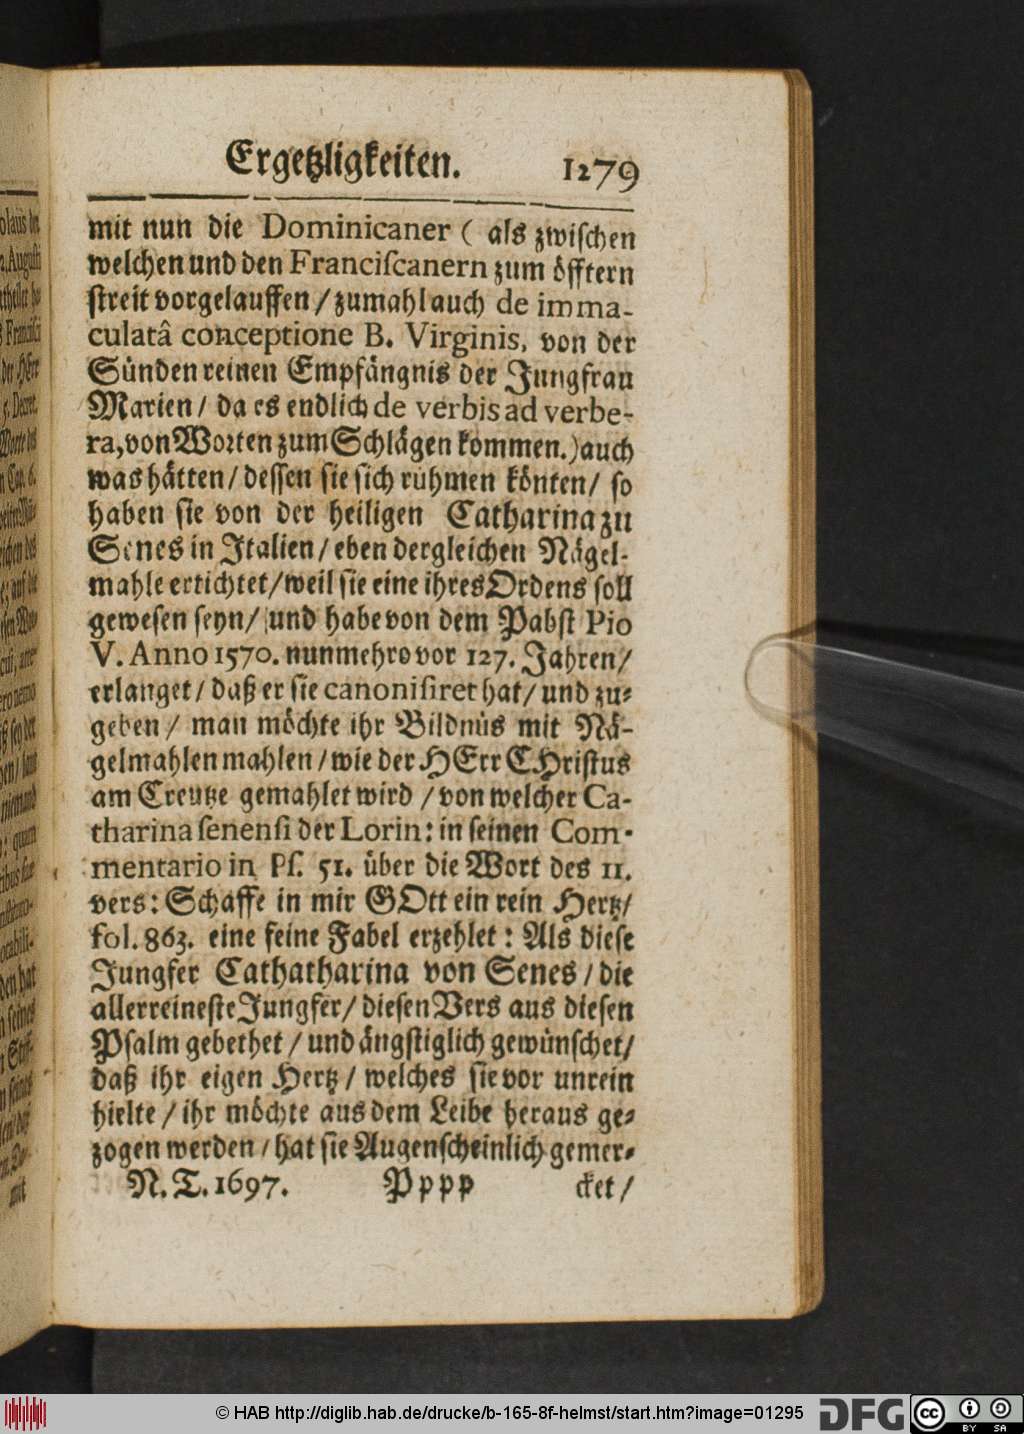 Ergetzligkeiten. 1279
mit nun die Dominicaner ( als zwischen
welchen und den Franciscanern zum öfftern
streit vorgelauffen / zumahl auch de imma-
culatâ conceptione B. Virginis, von der
Sünden reinen Empfängnis der Jungfrau
Marien / da es endlich de verbis ad verbe-
ra, von Worten zum Schlägen kommen.) auch
was hätten / dessen sie sich rühmen könten / so
haben sie von der heiligen Catharina zu
Senes in Italien / eben dergleichen Nägel-
mahle ertichtet / weil sie eine ihres Ordens soll
gewesen seyn / und habe von dem Pabst Pio
V. Anno 1570. nunmehro vor 127. Jahren /
erlanget / daß er sie canonisiret hat / und zu-
geben / man möchte ihr Bildnüs mit Nä-
gelmahlen mahlen / wie der HErr CHristus
am Creutze gemahlet wird / von welcher Ca-
tharina senensi der Lorin: in seinen Com-
mentario in Ps. 51. über die Wort des 11.
vers: Schaffe in mir GOtt ein rein Hertz /
fol. 863. eine feine Fabel erzehlet : Als diese
Jungfer Cathatharina von Senes / die
allerreineste Jungfer / diesen Vers aus diesen
Psalm gebethet / und ängstiglich gewünschet /
daß ihr eigen Hertz / welches sie vor unrein
hielte / ihr möchte aus dem Leibe heraus ge-
zogen werden / hat sie Augenscheinlich gemer-
N. T. 1697. Pppp cket /
© HAB http://diglib.hab.de/drucke/b-165-8f-helmst/start.htm?image=01295
DFG
cc BY SA